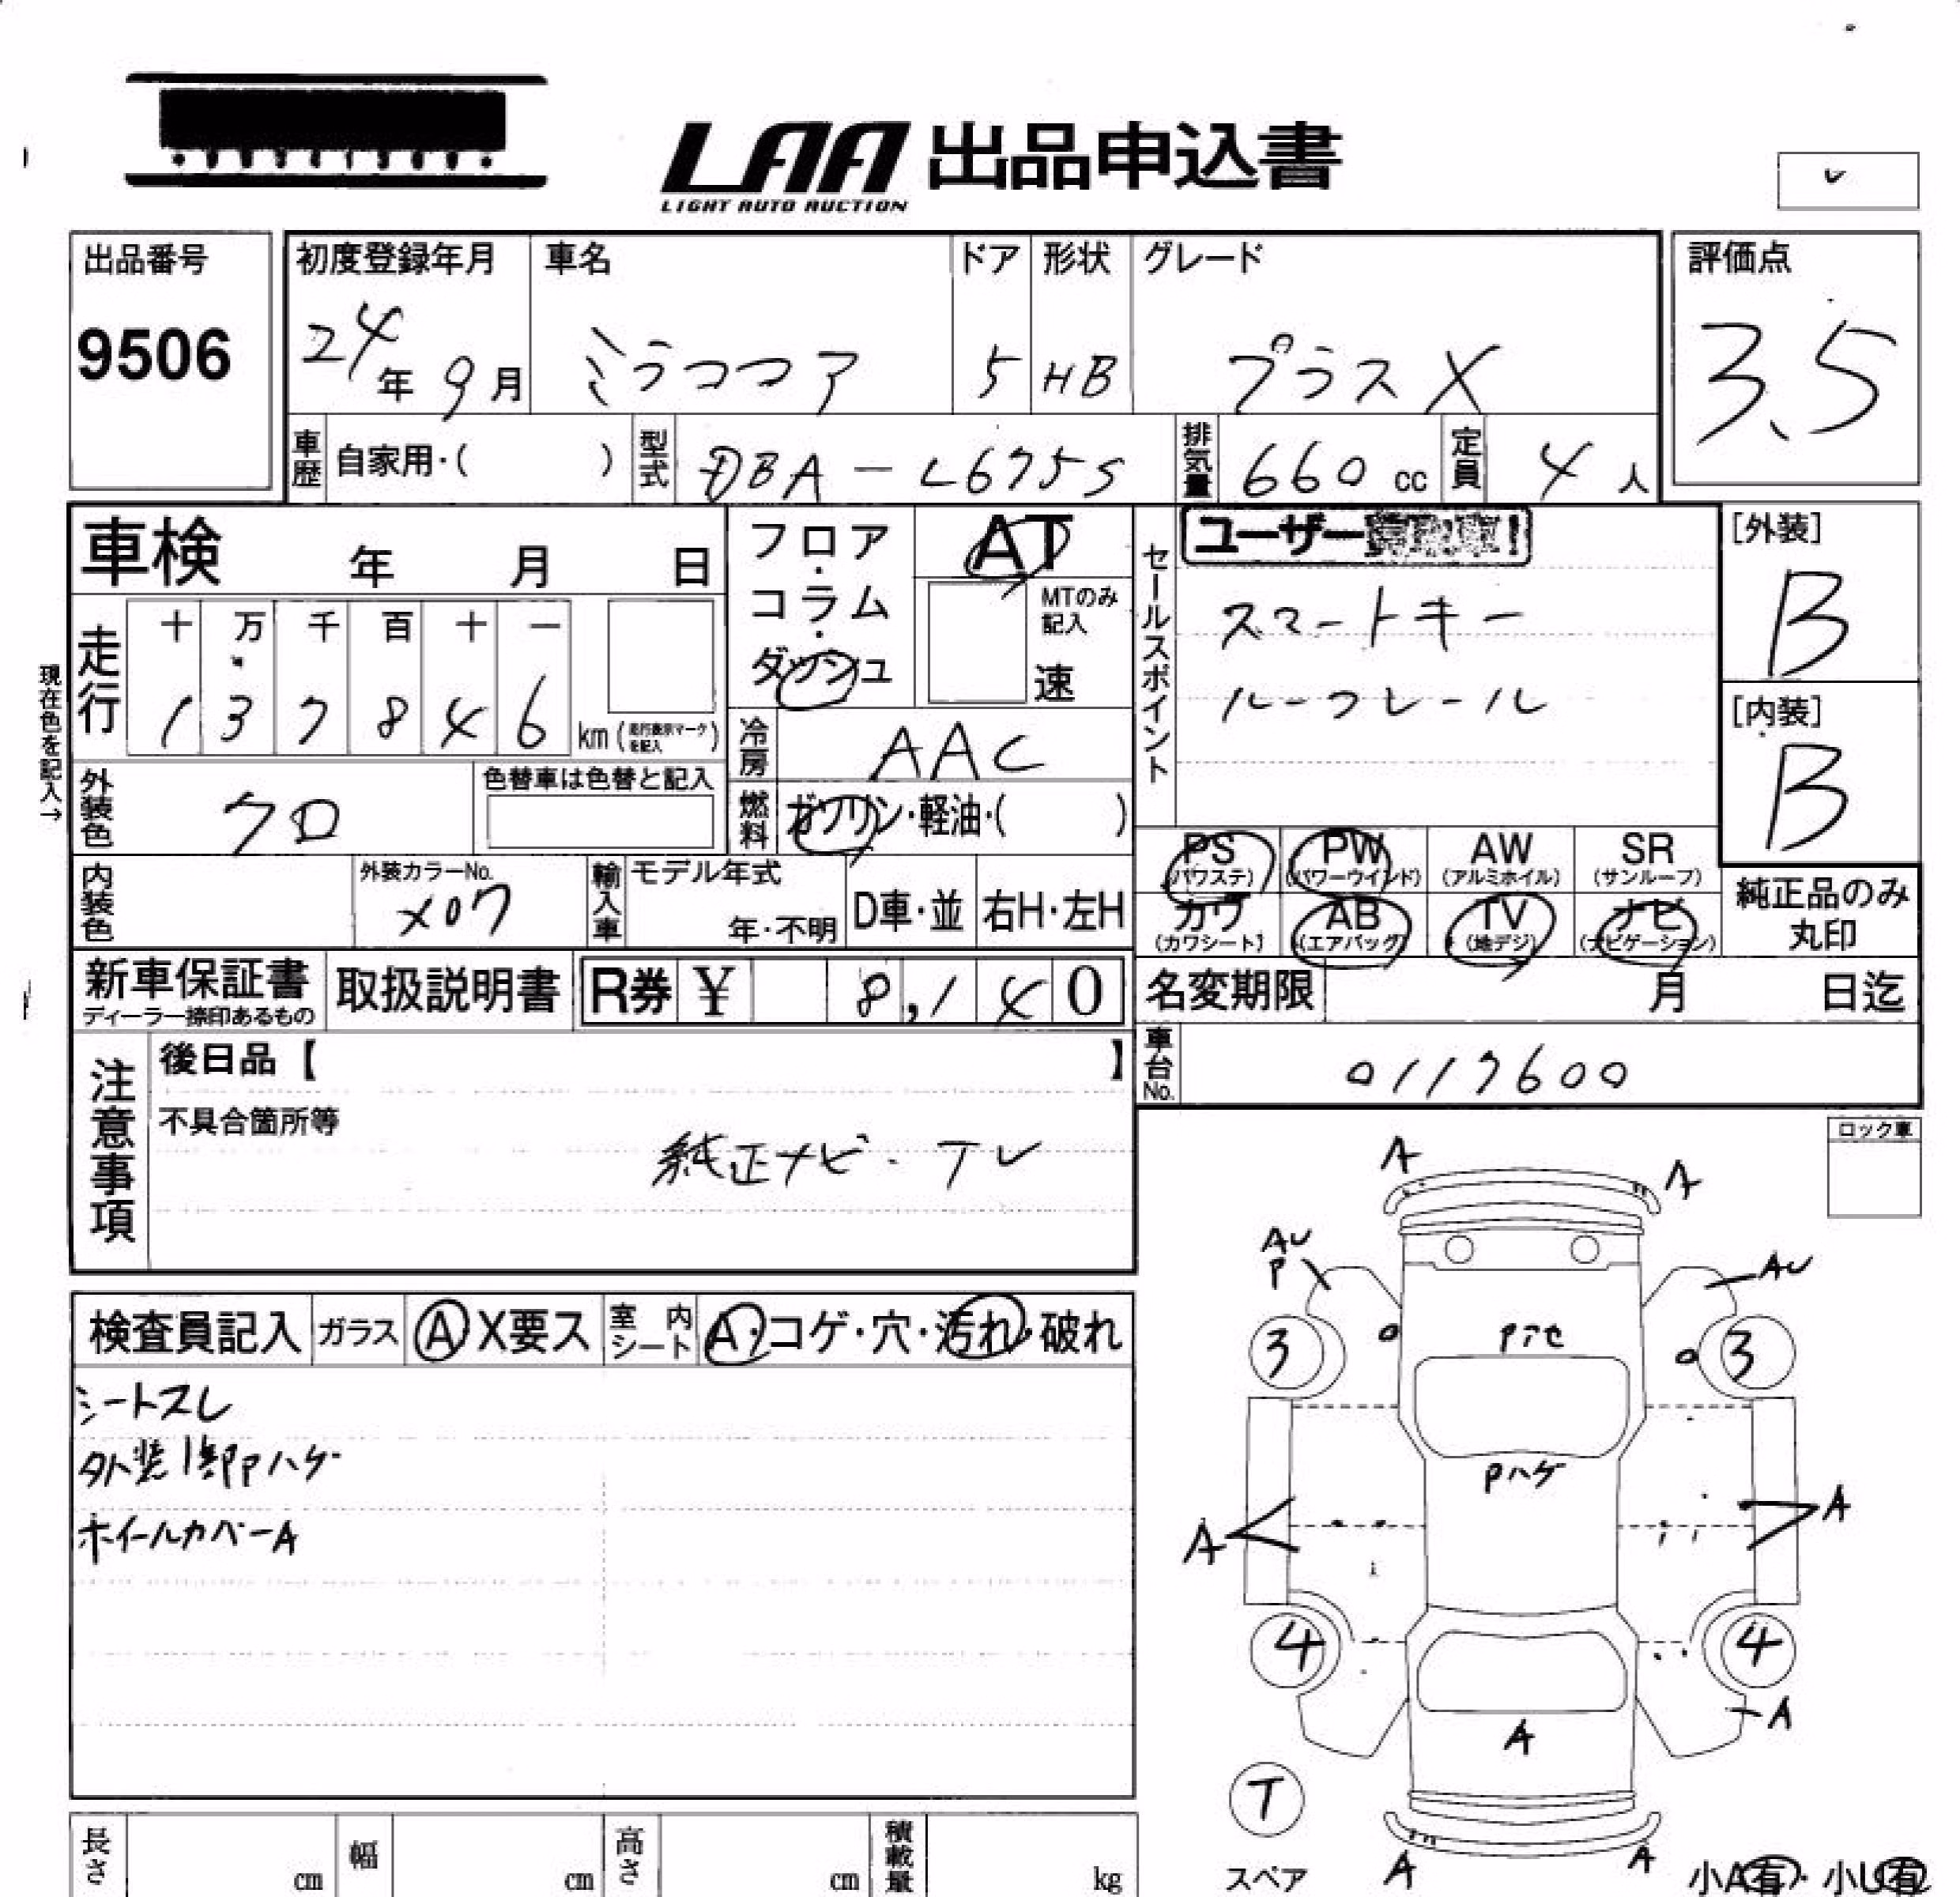 LAA 出品申込書
LIGHT AUTO AUCTION
出品番号
9506
初度登録年月
24年 9月
車名
ミラココア
ドア
5
形状
HB
グレード
プラスX
評価点
3.5
車歴 自家用・( )
型式 DBA-L675S
排気量 660 cc
定員 4 人
車検 年 月 日
フロア・コラム・ダッシュ
AT
MTのみ記入
速
セールスポイント
ユーザー
スマートキー
ルーフレール
[外装]
B
[内装]
B
現在色を記入→
走行
十 万 千 百 十 一
1 3 7 8 4 6 km (走行表示マークを記入)
冷房 AAC
外装色 クロ
色替車は色替と記入
燃料 ガソリン・軽油・( )
内装色
外装カラーNo.
X07
輸入車
モデル年式
年・不明
D車・並
右H・左H
PS (パワステ)
PW (パワーウインド)
AW (アルミホイル)
SR (サンルーフ)
カワ (カワシート)
AB (エアバッグ)
TV (地デジ)
ナビ (ナビゲーション)
純正品のみ丸印
新車保証書
ディーラー捺印あるもの
取扱説明書
R券 ¥ 8,140
名変期限 月 日迄
車台No. 0117600
注意事項
後日品【 】
不具合箇所等
純正ナビ・TV
ロック車
検査員記入
ガラス A X要ス
室内シート A・コゲ・穴・汚れ・破れ
シートスレ
外装1部Pハゲ
ホイールカバーA
A
A
AU
P
AU
3
3
Pハゲ
A
A
4
4
A
A
T
スペア
A
A
小A有・小U有
長さ cm
幅 cm
高さ cm
積載量 kg